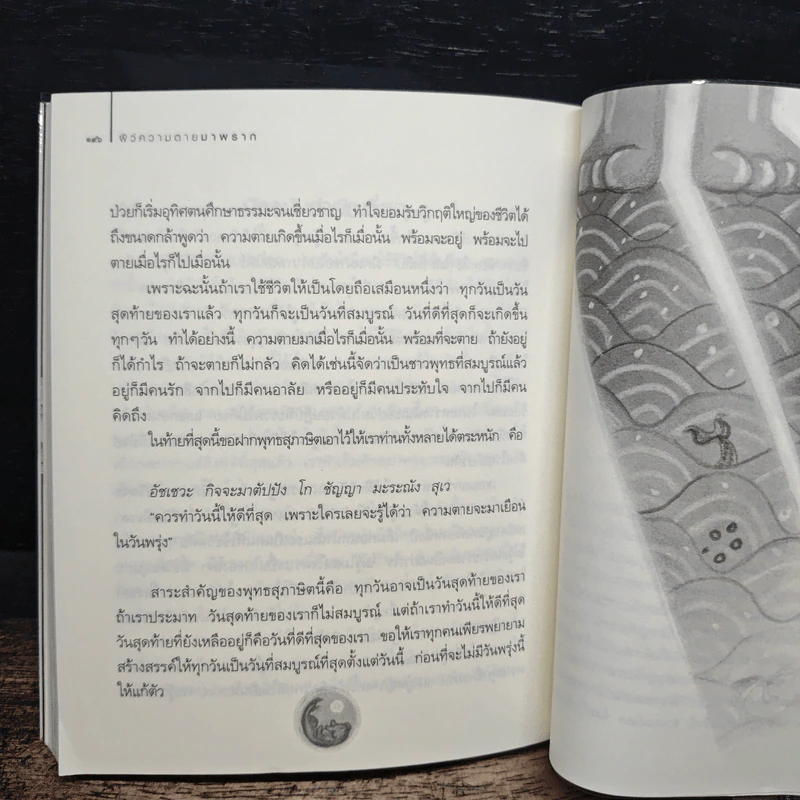 ๑๙๖ พิวีความตายมาพราก
ป่วยก็เริ่มอุทิศตนศึกษาธรรมะจนเชี่ยวชาญ ทำใจยอมรับวิกฤติใหญ่ของชีวิตได้
ถึงขนาดกล้าพูดว่า ความตายเกิดขึ้นเมื่อไรก็เมื่อนั้น พร้อมจะอยู่ พร้อมจะไป
ตายเมื่อไรก็ไปเมื่อนั้น
เพราะฉะนั้นถ้าเราใช้ชีวิตให้เป็นโดยถือเสมือนหนึ่งว่า ทุกวันเป็นวัน
สุดท้ายของเราแล้ว ทุกวันก็จะเป็นวันที่สมบูรณ์ วันที่ดีที่สุดก็จะเกิดขึ้น
ทุกๆวัน ทำได้อย่างนี้ ความตายมาเมื่อไรก็เมื่อนั้น พร้อมที่จะตาย ถ้ายังอยู่
ก็ได้กำไร ถ้าจะตายก็ไม่กลัว คิดได้เช่นนี้จัดว่าเป็นชาวพุทธที่สมบูรณ์แล้ว
อยู่ก็มีคนรัก จากไปก็มีคนอาลัย หรืออยู่ก็มีคนประทับใจ จากไปก็มีคน
คิดถึง
ในท้ายที่สุดนี้ขอฝากพุทธสุภาษิตเอาไว้ให้เราท่านทั้งหลายได้ตระหนัก คือ
อัชเชวะ กิจจะมาตัปปัง โก ชัญญา มะระณัง สุเว
“ควรทำวันนี้ให้ดีที่สุด เพราะใครเลยจะรู้ได้ว่า ความตายจะมาเยือน
ในวันพรุ่ง”
สาระสำคัญของพุทธสุภาษิตนี้คือ ทุกวันอาจเป็นวันสุดท้ายของเรา
ถ้าเราประมาท วันสุดท้ายของเราก็ไม่สมบูรณ์ แต่ถ้าเราทำวันนี้ให้ดีที่สุด
วันสุดท้ายที่ยังเหลืออยู่ก็คือวันที่ดีที่สุดของเรา ขอให้เราทุกคนเพียรพยายาม
สร้างสรรค์ให้ทุกวันเป็นวันที่สมบูรณ์ที่สุดตั้งแต่วันนี้ ก่อนที่จะไม่มีวันพรุ่งนี้
ให้แก้ตัว